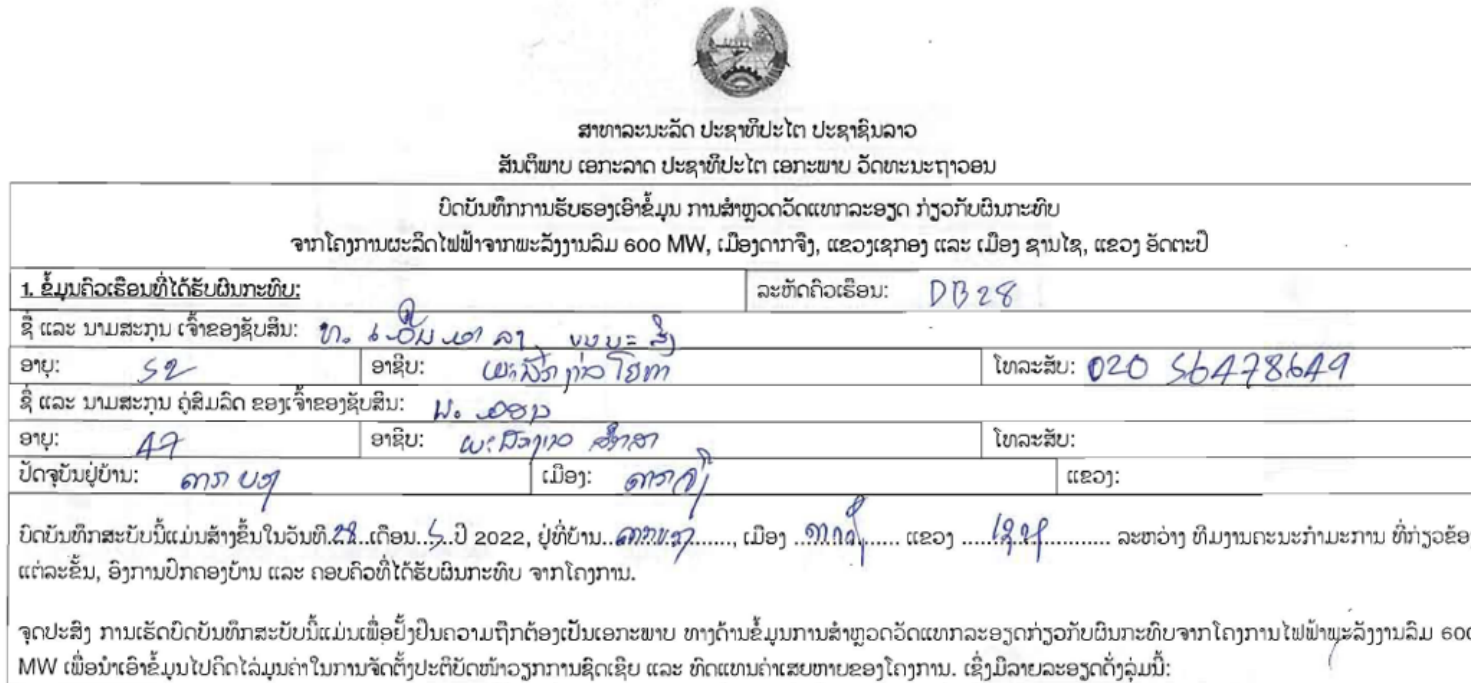 ສາທາລະນະລັດ ປະຊາທິປະໄຕ ປະຊາຊົນລາວ
ສັນຕິພາບ ເອກະລາດ ປະຊາທິປະໄຕ ເອກະພາບ ວັດທະນະຖາວອນ
ບົດບັນທຶກການຮັບຮອງເອົາຂໍ້ມູນ ການສຳຫຼວດວັດແທກລະອຽດ ກ່ຽວກັບຜົນກະທົບ
ຈາກໂຄງການຜະລິດໄຟຟ້າຈາກພະລັງງານລົມ 600 MW, ເມືອງດາກຈຶງ, ແຂວງເຊກອງ ແລະ ເມືອງ ຊານໄຊ, ແຂວງ ອັດຕະປື
1. ຂໍ້ມູນຄົວເຮືອນທີ່ໄດ້ຮັບຜົນກະທົບ: ລະຫັດຄົວເຮືອນ: DB28
ຊື່ ແລະ ນາມສະກຸນ ເຈົ້າຂອງຊັບສິນ: ທ.
ອາຍຸ: 52 ອາຊີບ: ໂທລະສັບ: 020 56478649
ຊື່ ແລະ ນາມສະກຸນ ຄູ່ສົມລົດ ຂອງເຈົ້າຂອງຊັບສິນ:
ອາຍຸ: 47 ອາຊີບ: ໂທລະສັບ:
ປັດຈຸບັນຢູ່ບ້ານ: ດາກ ບງ ເມືອງ: ດາກຈຶງ ແຂວງ:
ບົດບັນທຶກສະບັບນີ້ແມ່ນສ້າງຂຶ້ນໃນວັນທີ.28..ເດືອນ..5..ປີ 2022, ຢູ່ທີ່ບ້ານ..........., ເມືອງ ..ດາກຈຶງ.... ແຂວງ .................... ລະຫວ່າງ ທີມງານຄະນະກຳມະການ ທີ່ກ່ຽວຂ້ອງ
ແຕ່ລະຂັ້ນ, ອົງການປົກຄອງບ້ານ ແລະ ຄອບຄົວທີ່ໄດ້ຮັບຜົນກະທົບ ຈາກໂຄງການ.
ຈຸດປະສົງ ການເຮັດບົດບັນທຶກສະບັບນີ້ແມ່ນເພື່ອຢັ້ງຢືນຄວາມຖືກຕ້ອງເປັນເອກະພາບ ທາງດ້ານຂໍ້ມູນການສຳຫຼວດວັດແທກລະອຽດກ່ຽວກັບຜົນກະທົບຈາກໂຄງການໄຟຟ້າພະລັງງານລົມ 600
MW ເພື່ອນຳເອົາຂໍ້ມູນໄປຄິດໄລ່ມູນຄ່າໃນການຈັດຕັ້ງປະຕິບັດໜ້າວຽກການຊົດເຊີຍ ແລະ ທົດແທນຄ່າເສຍຫາຍຂອງໂຄງການ. ເຊິ່ງມີລາຍລະອຽດດັ່ງລຸ່ມນີ້: